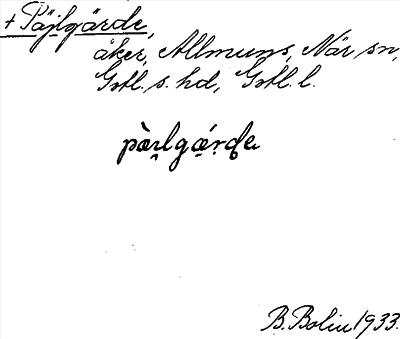 + Päjlgärde,
åker, Allmuns, När sn,
Gotl. s. hd, Gotl. l.
pàɪ̯lgǽrde
B. Bolin 1933.